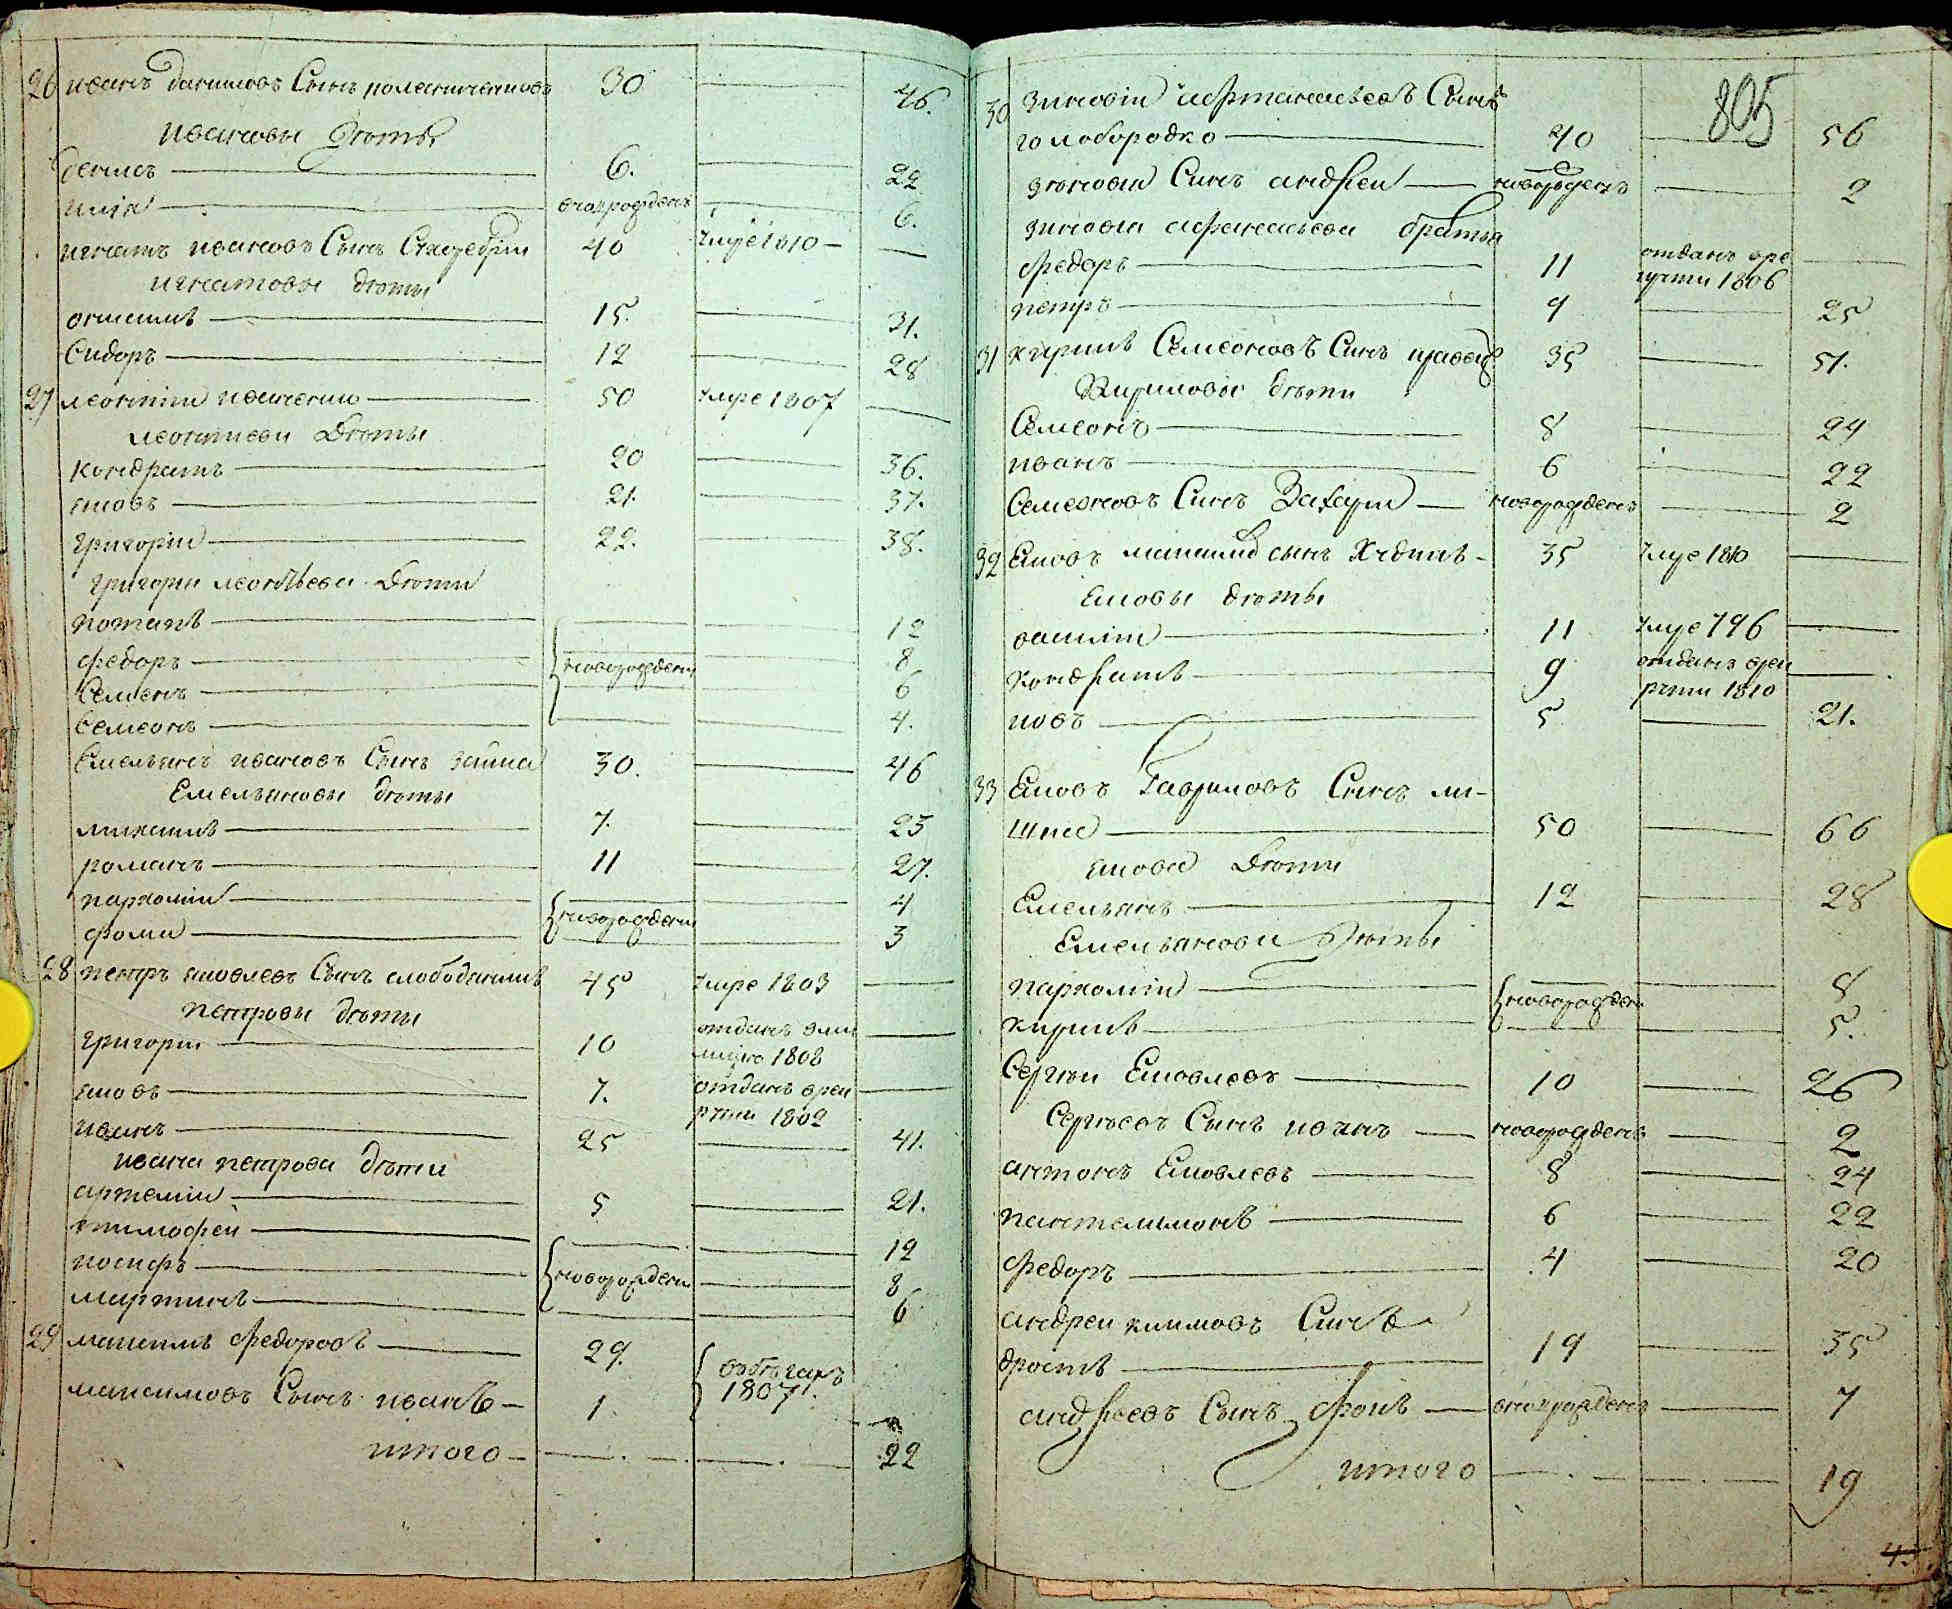 26 иванъ даниловъ Сынъ 30 46.
ивановы дѣты
денисъ 6. 22
илія новорожденъ 6.
игнатъ ивановъ Сынъ 40 умре 1810
игнатовы дѣты
онисимъ 15. 31.
Сидоръ 12 28
27 леонтіи иваненко 50 умре 1807
леонтиеви Дѣты
кондратъ 20 36.
яковъ 21. 37.
григоріи 22. 38.
григори леонтьеви Дѣти
потапъ 12
федоръ 8
новорождени
Семенъ 6
Семеонъ 4.
Емельянъ ивановъ Сынъ заика 30. 46
Емельяновы дѣты
михаилъ 7. 23
романъ 11 27.
пархоміи 4
новорождени
фома 3
28 петръ яковлевъ Сынъ слободяникъ 45 умре 1803
петровы дѣты
григори 10 отданъ 1808
яковъ 7. отданъ врек
рути 1802
иванъ 25 41.
ивана петрова дѣти
артеміи 5 21.
тимофеи 12
иосифъ 8
новорождени
мартинъ 6
29 максимъ федоровъ 29.
максимовъ Сынъ иванъ 1.
1807.
итого 22
805
30 зиновіи афанасьевъ Сынъ
голобородко 40 56
зѣновіи Синъ андреи новорожденъ 2
зиновіи афанасьеви братья
федоръ 11 отданъ вре
крути 1806
петръ 9 25
31 кирилъ Семеоновъ Синъ 35 51.
Кириловы дѣти
Семеонъ 8 24
иванъ 6 22
Семеоновъ Синъ Захари новорожденъ 2
32 Яковъ сынъ 35 умре 1810
Яковы дѣты
василіи 11 умре 796
кондратъ 9 отданъ врек
рути 1810
иовъ 5 21.
33 Яковъ Гавриловъ Синъ ли-
50 66
якова Дѣти
Емельянъ 12 28
Емельянови Дѣты
пархоміи 8
новорожден
кирилъ 5.
Сергѣи Яковлевъ 10 26
Сергѣевъ Сынъ иванъ новорожденъ 2
антонъ Яковлевъ 8 24
пантелимонъ 6 22
федоръ 4 20
андреи климовъ Синъ
19 35
андреевъ Сынъ новорожденъ 7
итого 19